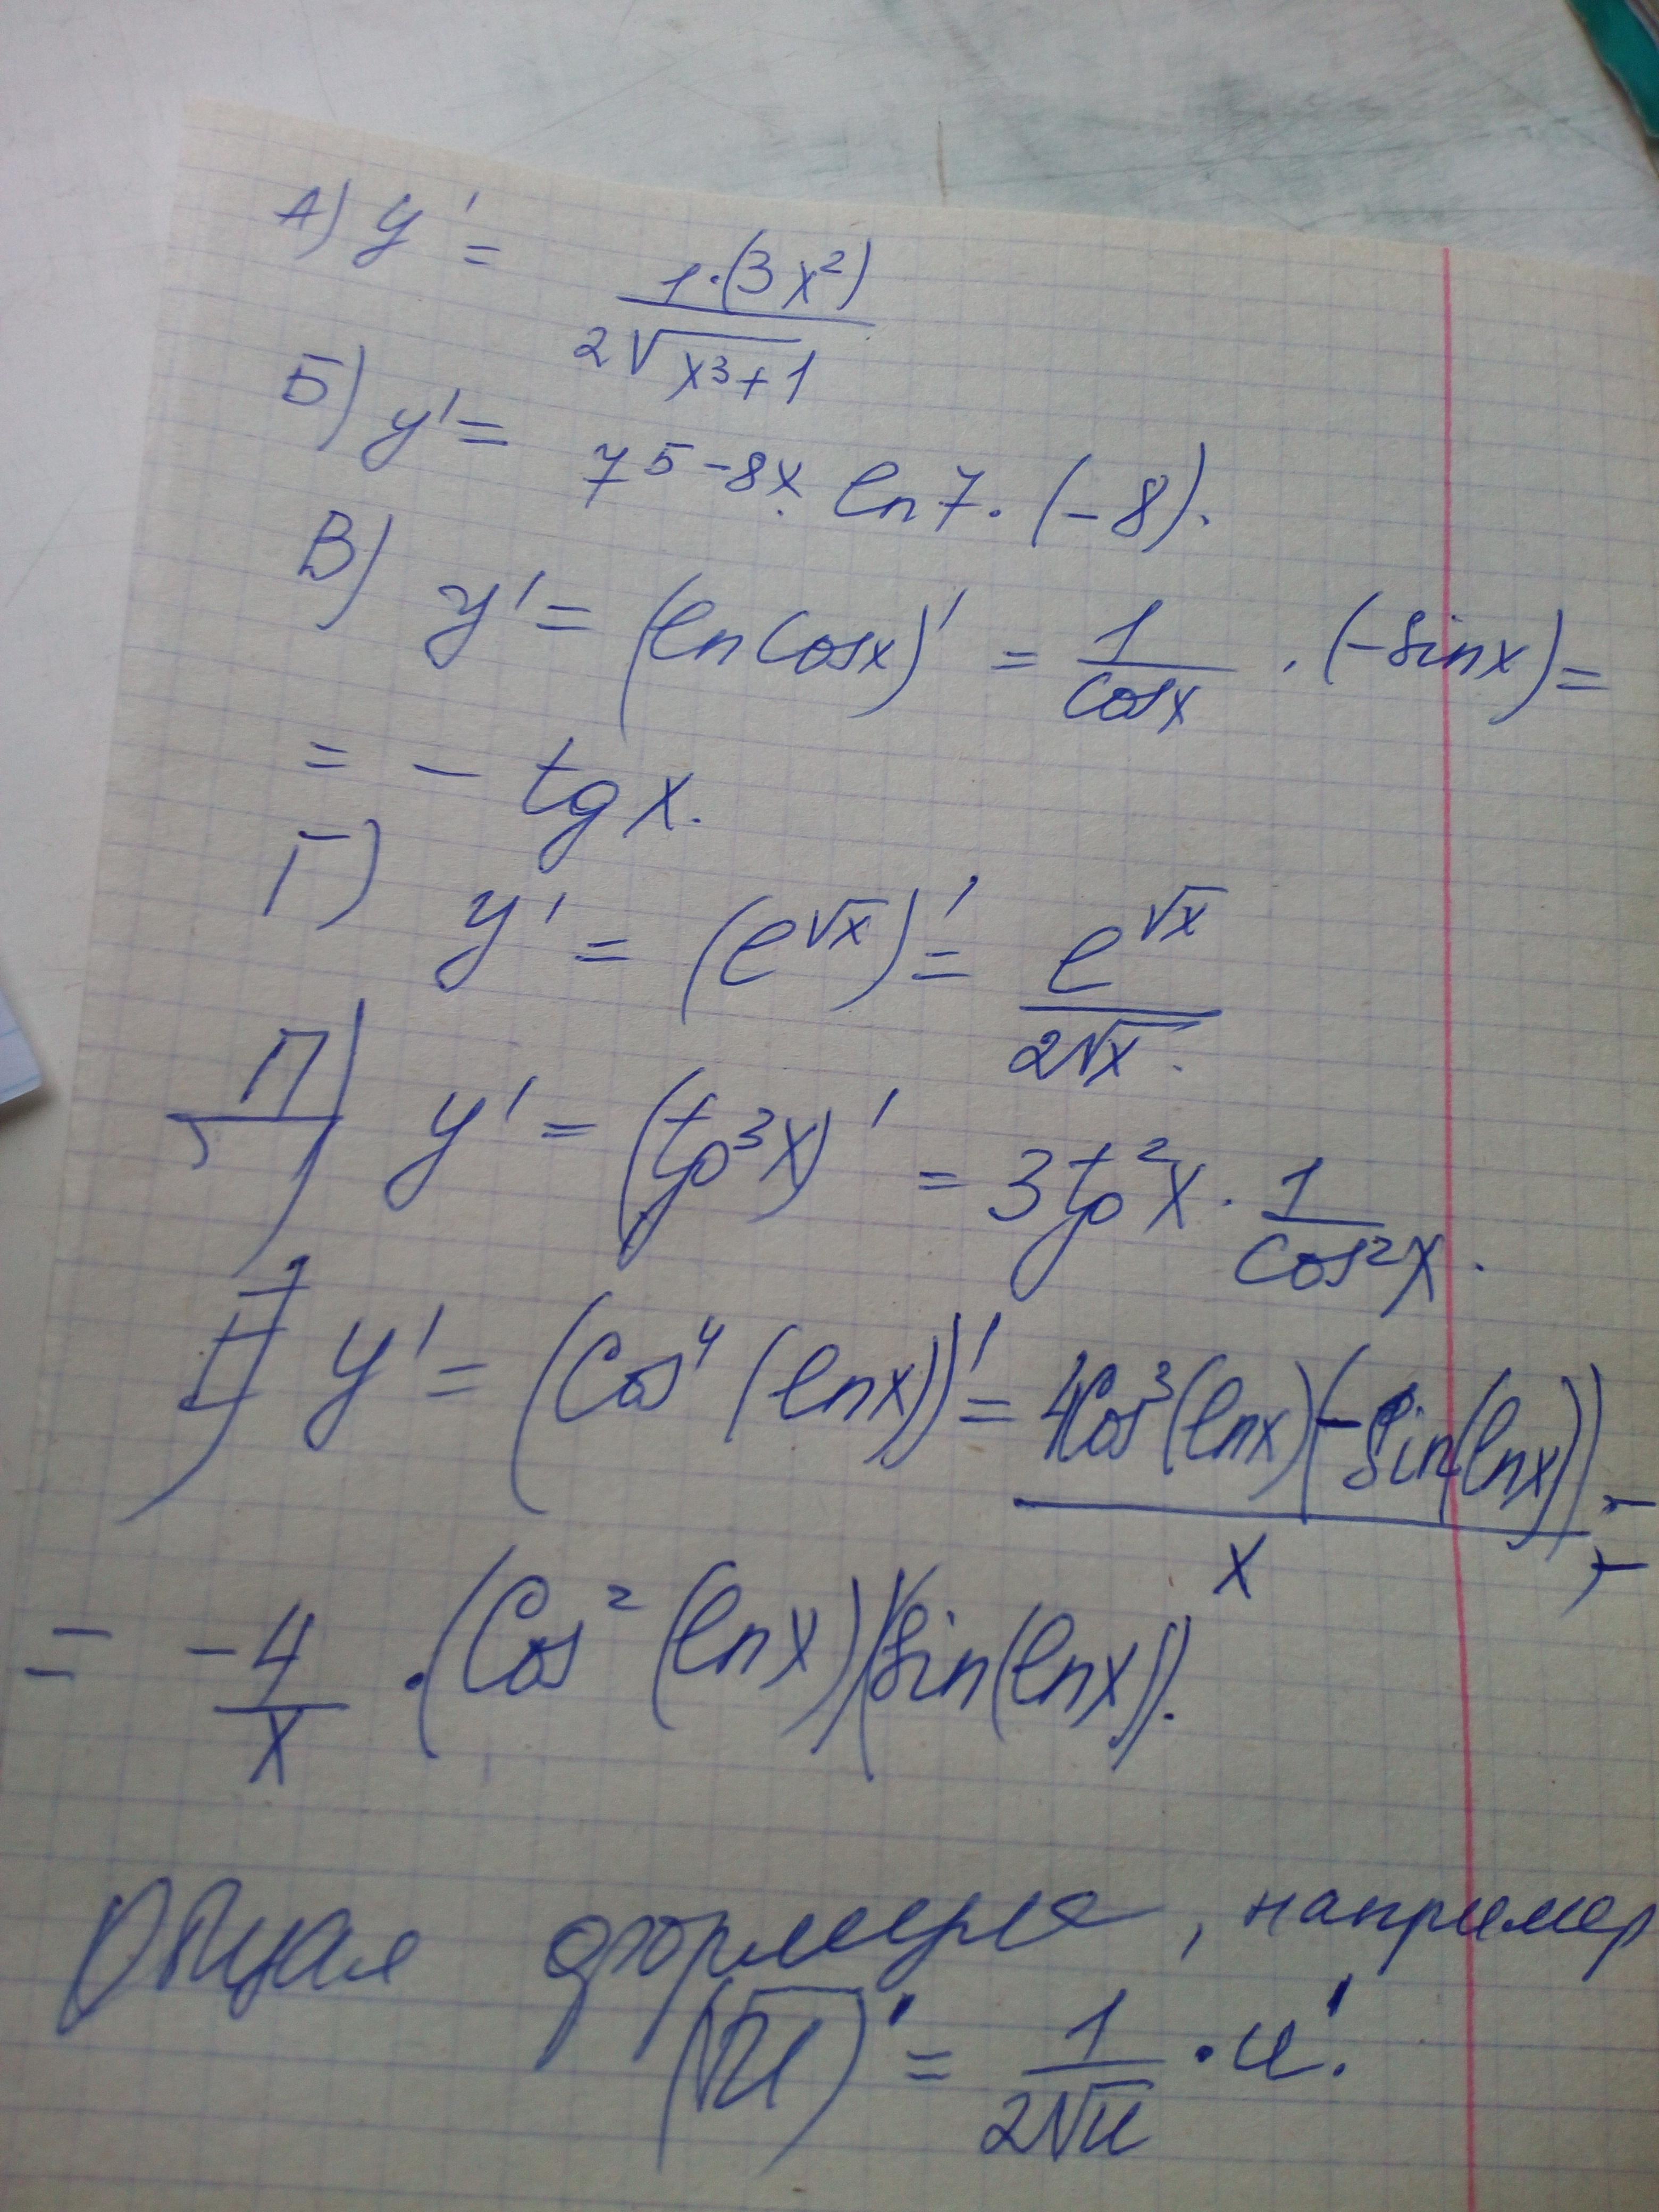 А) y' = \frac{1·(3x²)}{2√(x³+1)}
Б) y' = 7^{5-8x} · ln7 · (-8).
В) y' = (ln cosx)' = \frac{1}{cosx} · (-sinx) =
= - tg x.
Г) y' = (e^{√x})' = \frac{e^{√x}}{2√x}.
Д) y' = (tg³x)' = 3tg²x · \frac{1}{cos²x}.
y' = (cos⁴(lnx))' = \frac{4cos³(lnx)(-sin(lnx))}{x} =
= \frac{-4}{x} · (cos²(lnx)(sin(lnx)).
Общая формула, например
(√u)' = \frac{1}{2√u} · u'.